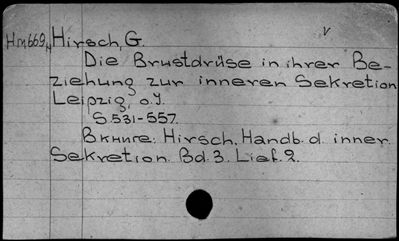 Hm669н Hirsch, G. v
Die Brustdrüse in ihrer Be-
ziehung zur inneren Sekretion
Leipzig, o.J.
S.531-557.
Вкниге. Hirsch. Handb. d. inner.
Sekretion. Bd. 3. Lief. 2.